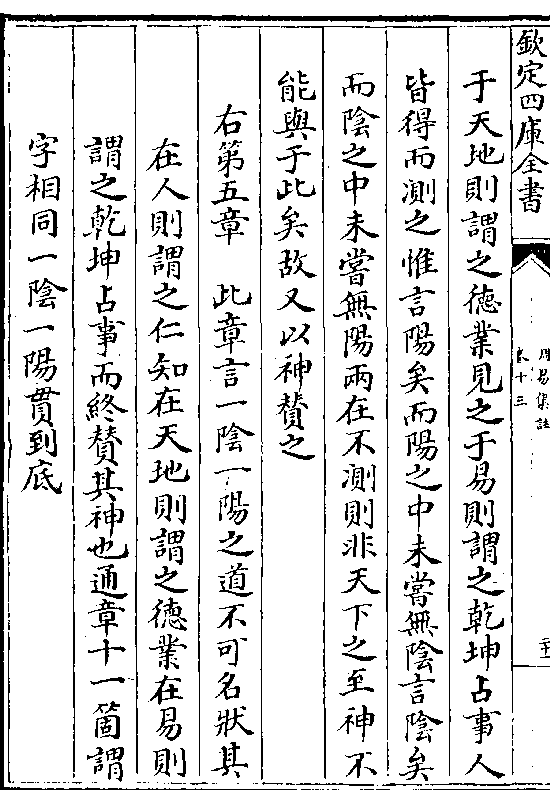 欽定四庫全書
周易集註
卷十三
二十
于天地則謂之德業見之于易則謂之乾坤占事人
皆得而測之惟言陽矣而陽之中未嘗無陰言陰矣
而陰之中未嘗無陽兩在不測則非天下之至神不
能與于此矣故又以神賛之
右第五章　此章言一陰一陽之道不可名狀其
在人則謂之仁知在天地則謂之德業在易則
謂之乾坤占事而終賛其神也通章十一箇謂
字相同一陰一陽貫到底